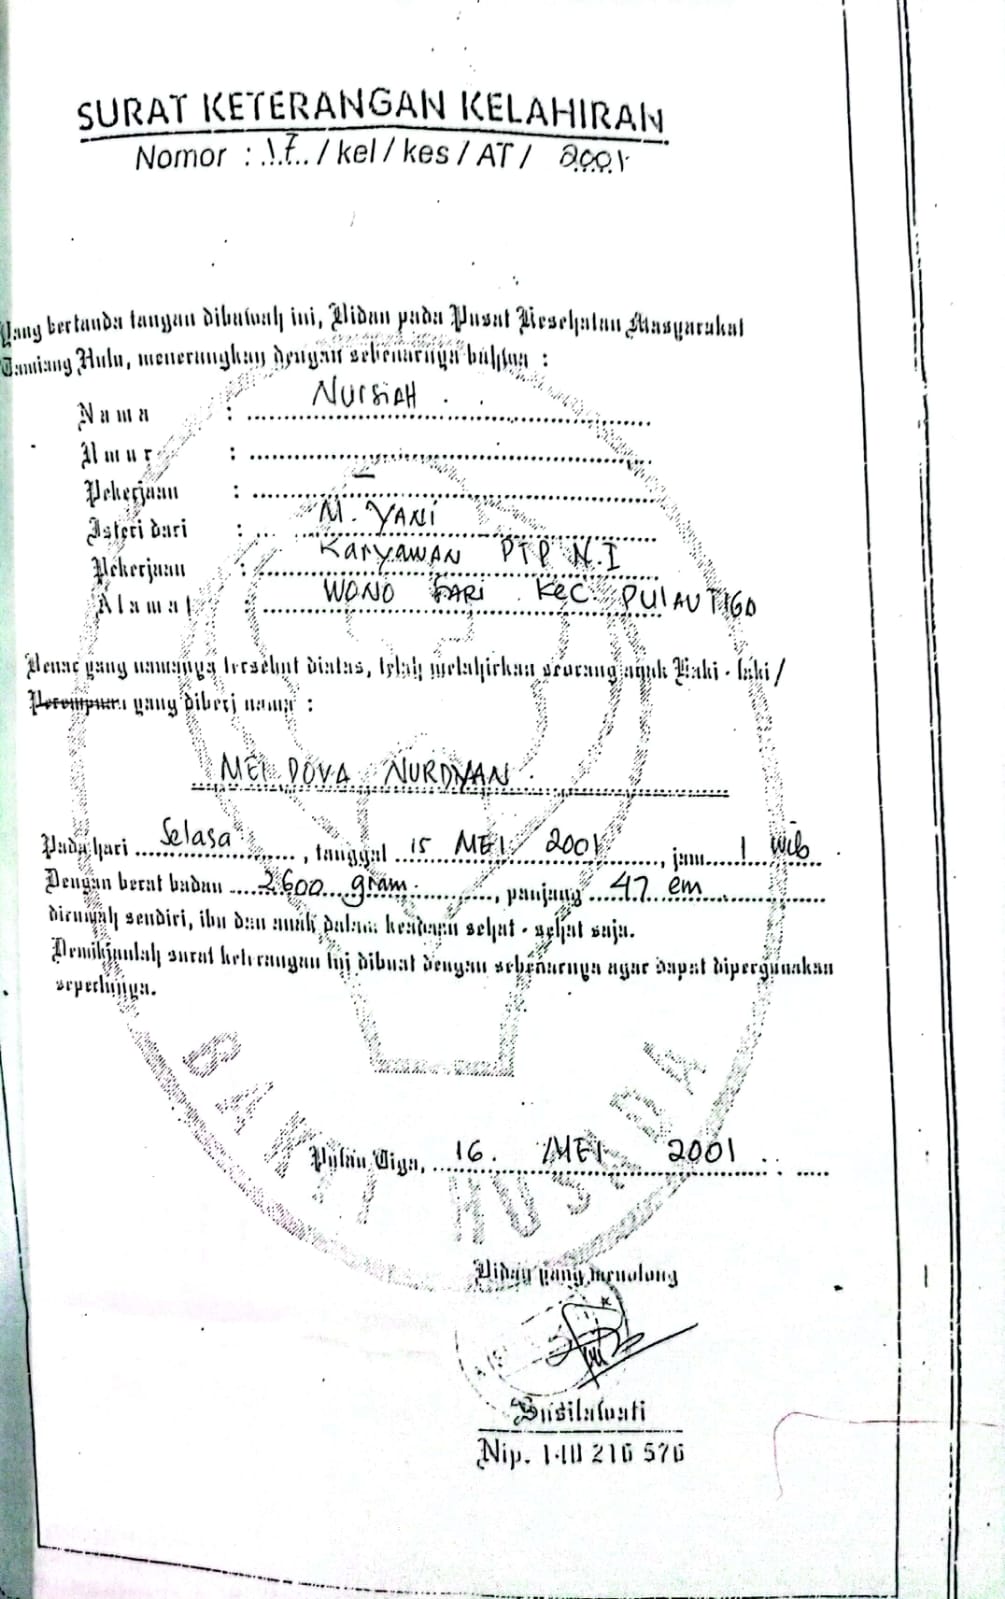 SURAT KETERANGAN KELAHIRAN
Nomor : .17. / kel / kes / AT / 2001
Yang bertanda tangan dibawah ini, Bidan pada Pusat Kesehatan Masyarakat
Tamiang Hulu, menerangkan dengan sebenarnya bahwa :
Nama : NURSIAH
Umur :
Pekerjaan : –
Isteri dari : M. YANI
Pekerjaan : KARYAWAN PTP N.I
Alamat : WONO SARI KEC. PULAU TIGA
Benar yang namanya tersebut diatas, telah melahirkan seorang anak Laki - laki /
Perempuan yang diberi nama :
MEI DOVA NURDYAN
Pada hari Selasa, tanggal 15 MEI 2001, jam 1 Wib
Dengan berat badan 2600 gram, panjang 47 cm
dirumah sendiri, ibu dan anak dalam keadaan sehat - sehat saja.
Demikianlah surat keterangan ini dibuat dengan sebenarnya agar dapat dipergunakan
seperlunya.
BAKTI HUSADA
Pulau Tiga, 16. MEI 2001
Bidan yang menolong
Susilawati
Nip. 140 216 576